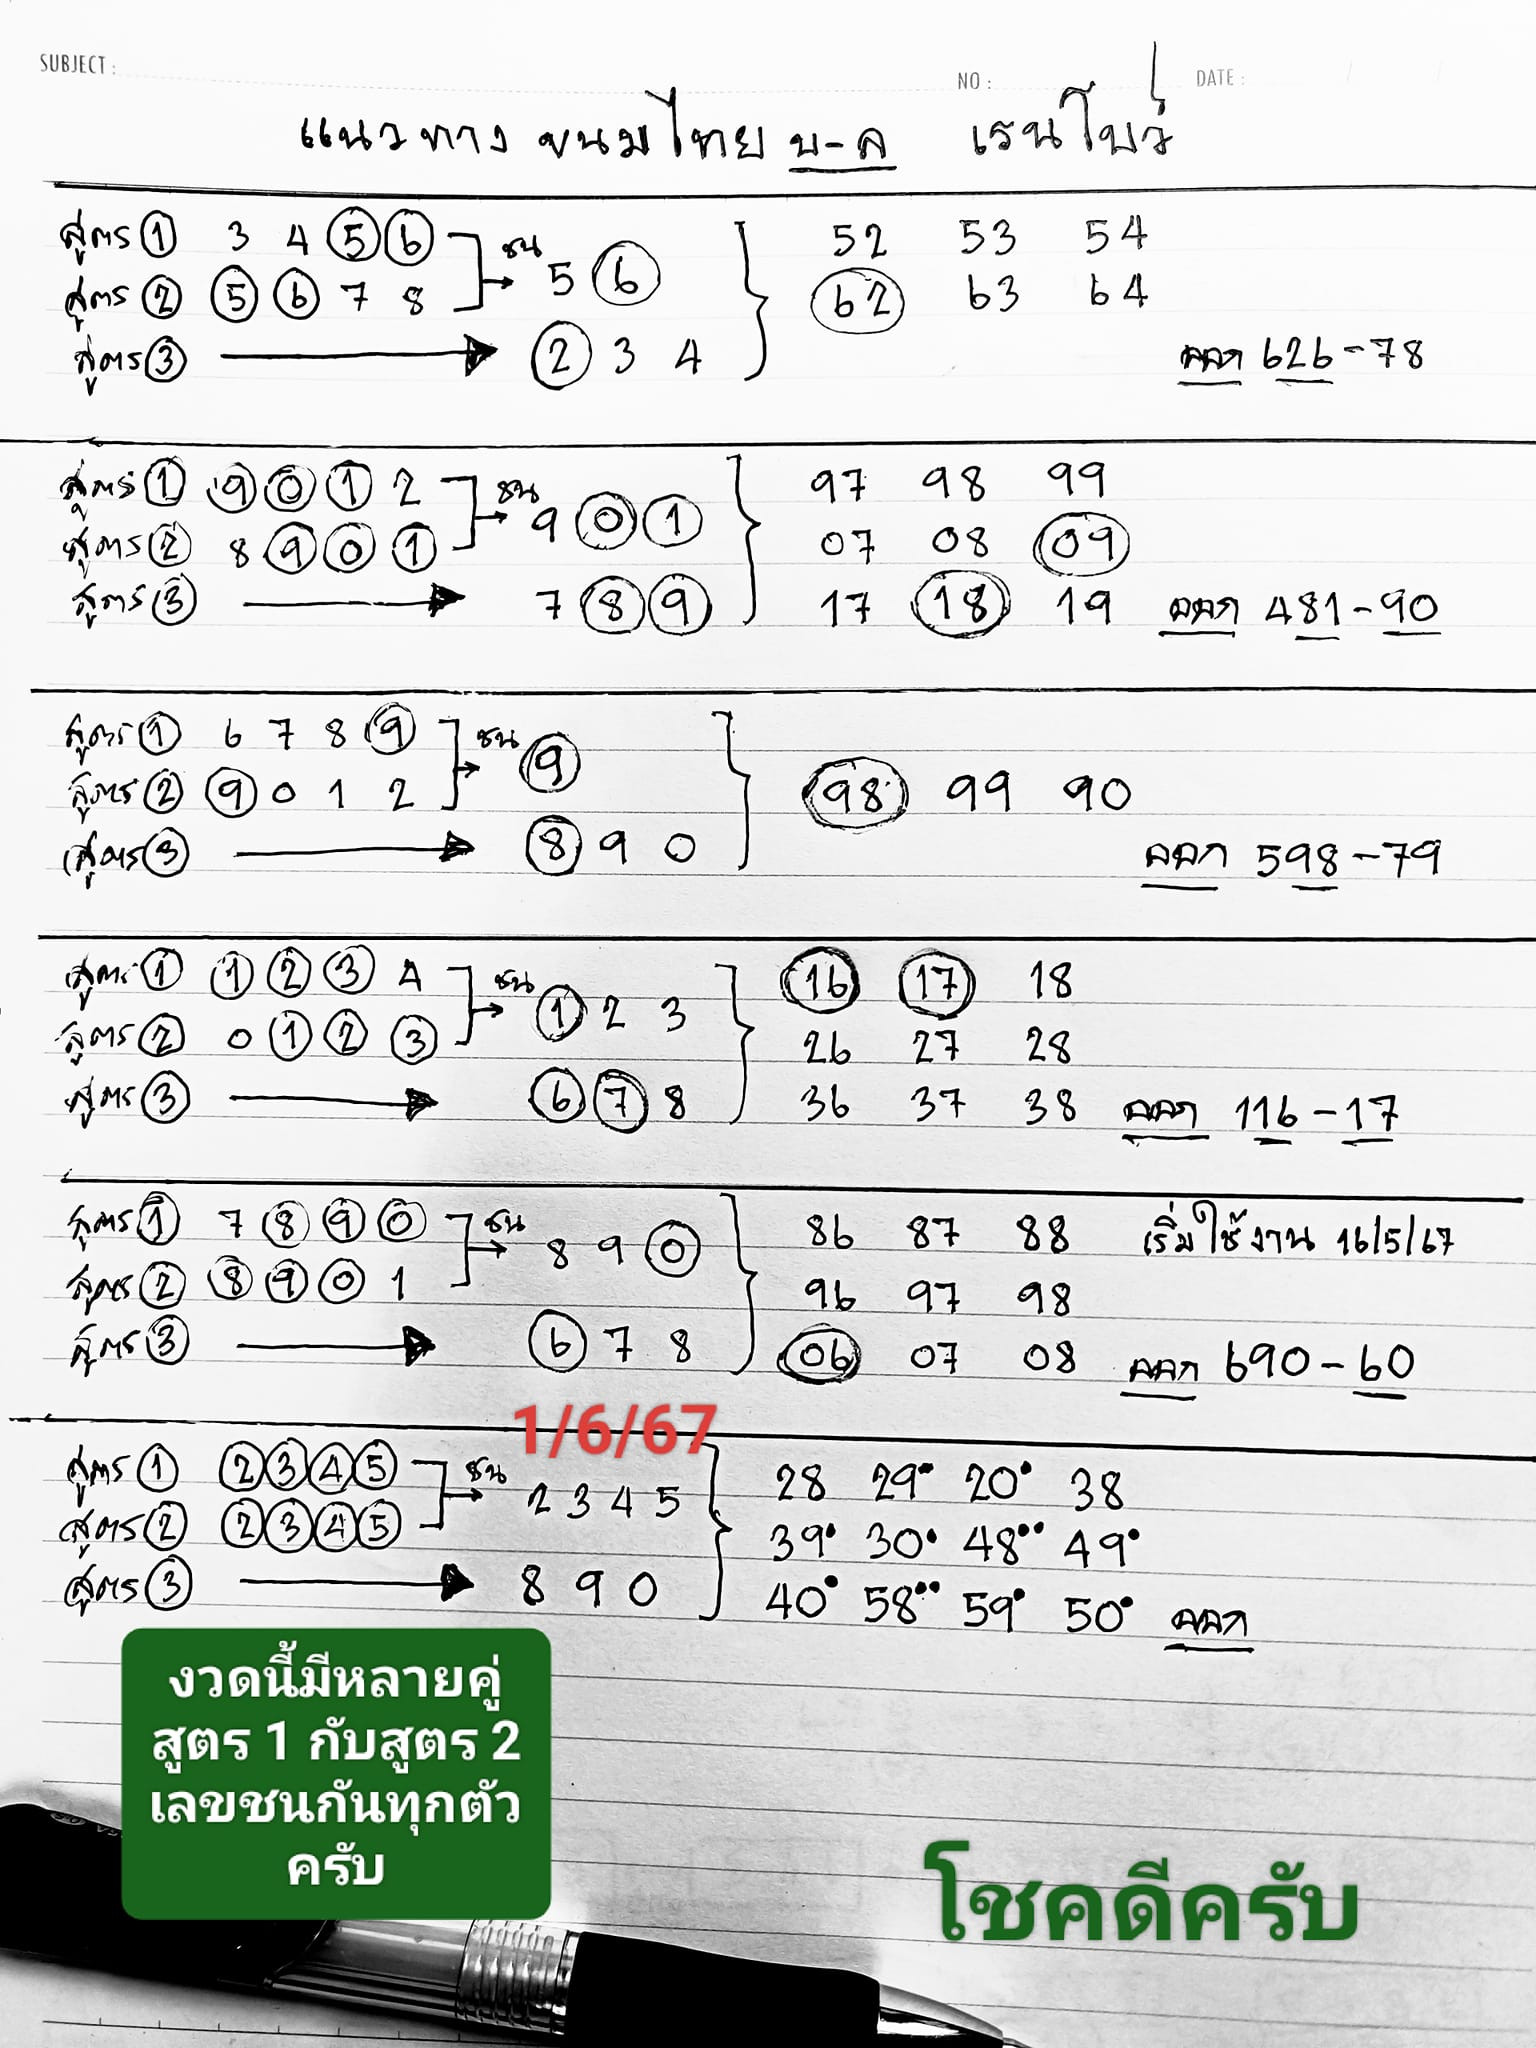 SUBJECT : NO : DATE :
แนวทาง ขนมไทย บ-ล เรนโบว์
สูตร ① 3 4 ⑤ ⑥ ชน 5 ⑥ 52 53 54
สูตร ② ⑤ ⑥ 7 8 62 63 64
สูตร ③ ② 3 4 ออก 626-78
สูตร ① ⑨ ⓪ ① 2 ชน 9 ⓪ ① 97 98 99
สูตร ② 8 ⑨ ⓪ ① 07 08 09
สูตร ③ 7 ⑧ ⑨ 17 18 19 ออก 481-90
สูตร ① 6 7 8 ⑨ ชน ⑨
สูตร ② ⑨ 0 1 2 98 99 90
สูตร ③ ⑧ 9 0 ออก 598-79
สูตร ① ① ② ③ 4 ชน ① 2 3 16 17 18
สูตร ② 0 ① ② ③ 26 27 28
สูตร ③ ⑥ ⑦ 8 36 37 38 ออก 116-17
สูตร ① 7 ⑧ ⑨ ⓪ ชน 8 9 ⓪ 86 87 88 เริ่มใช้งาน 16/5/67
สูตร ② ⑧ ⑨ ⓪ 1 96 97 98
สูตร ③ ⑥ 7 8 06 07 08 ออก 690-60
1/6/67
สูตร ① ② ③ ④ ⑤ ชน 2 3 4 5 28 29• 20• 38
สูตร ② ② ③ ④ ⑤ 39• 30• 48•• 49•
สูตร ③ 8 9 0 40• 58•• 59• 50• ออก
งวดนี้มีหลายคู่
สูตร 1 กับสูตร 2
เลขชนกันทุกตัว
ครับ
โชคดีครับ